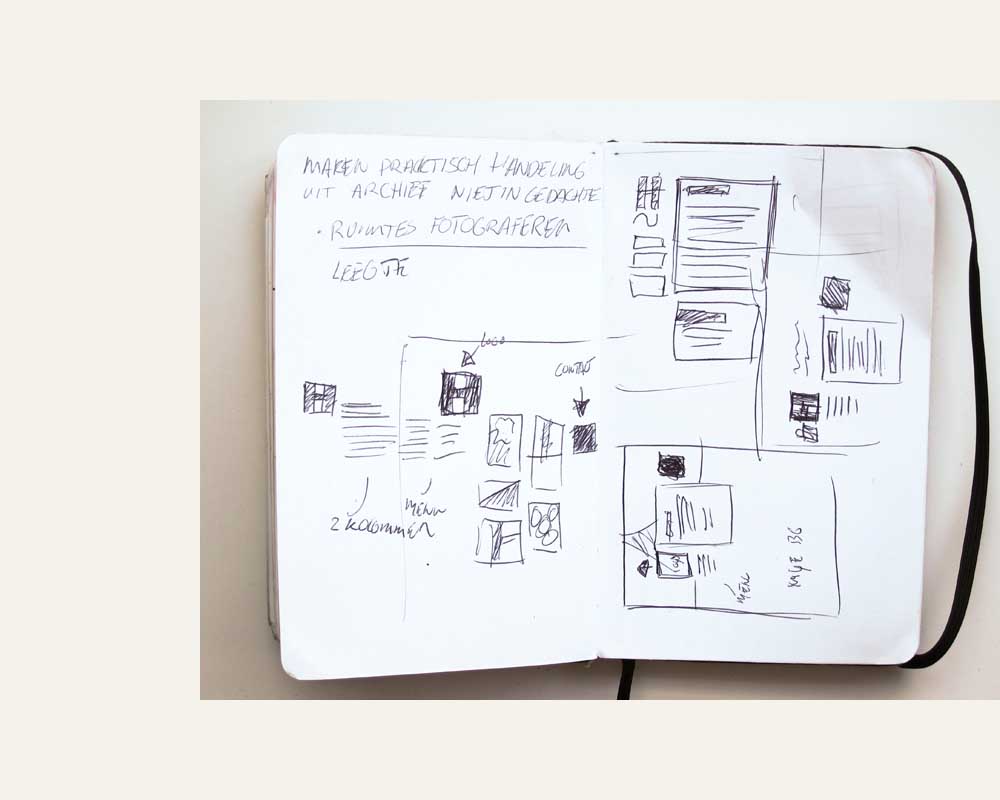 MAKEN PRAKTISCH HANDELING
UIT ARCHIEF NIET IN GEDACHTE
• RUIMTES FOTOGRAFEREN
LEEGTE
LOGO
CONTACT
MENU
2 KOLOMMEN
MENU